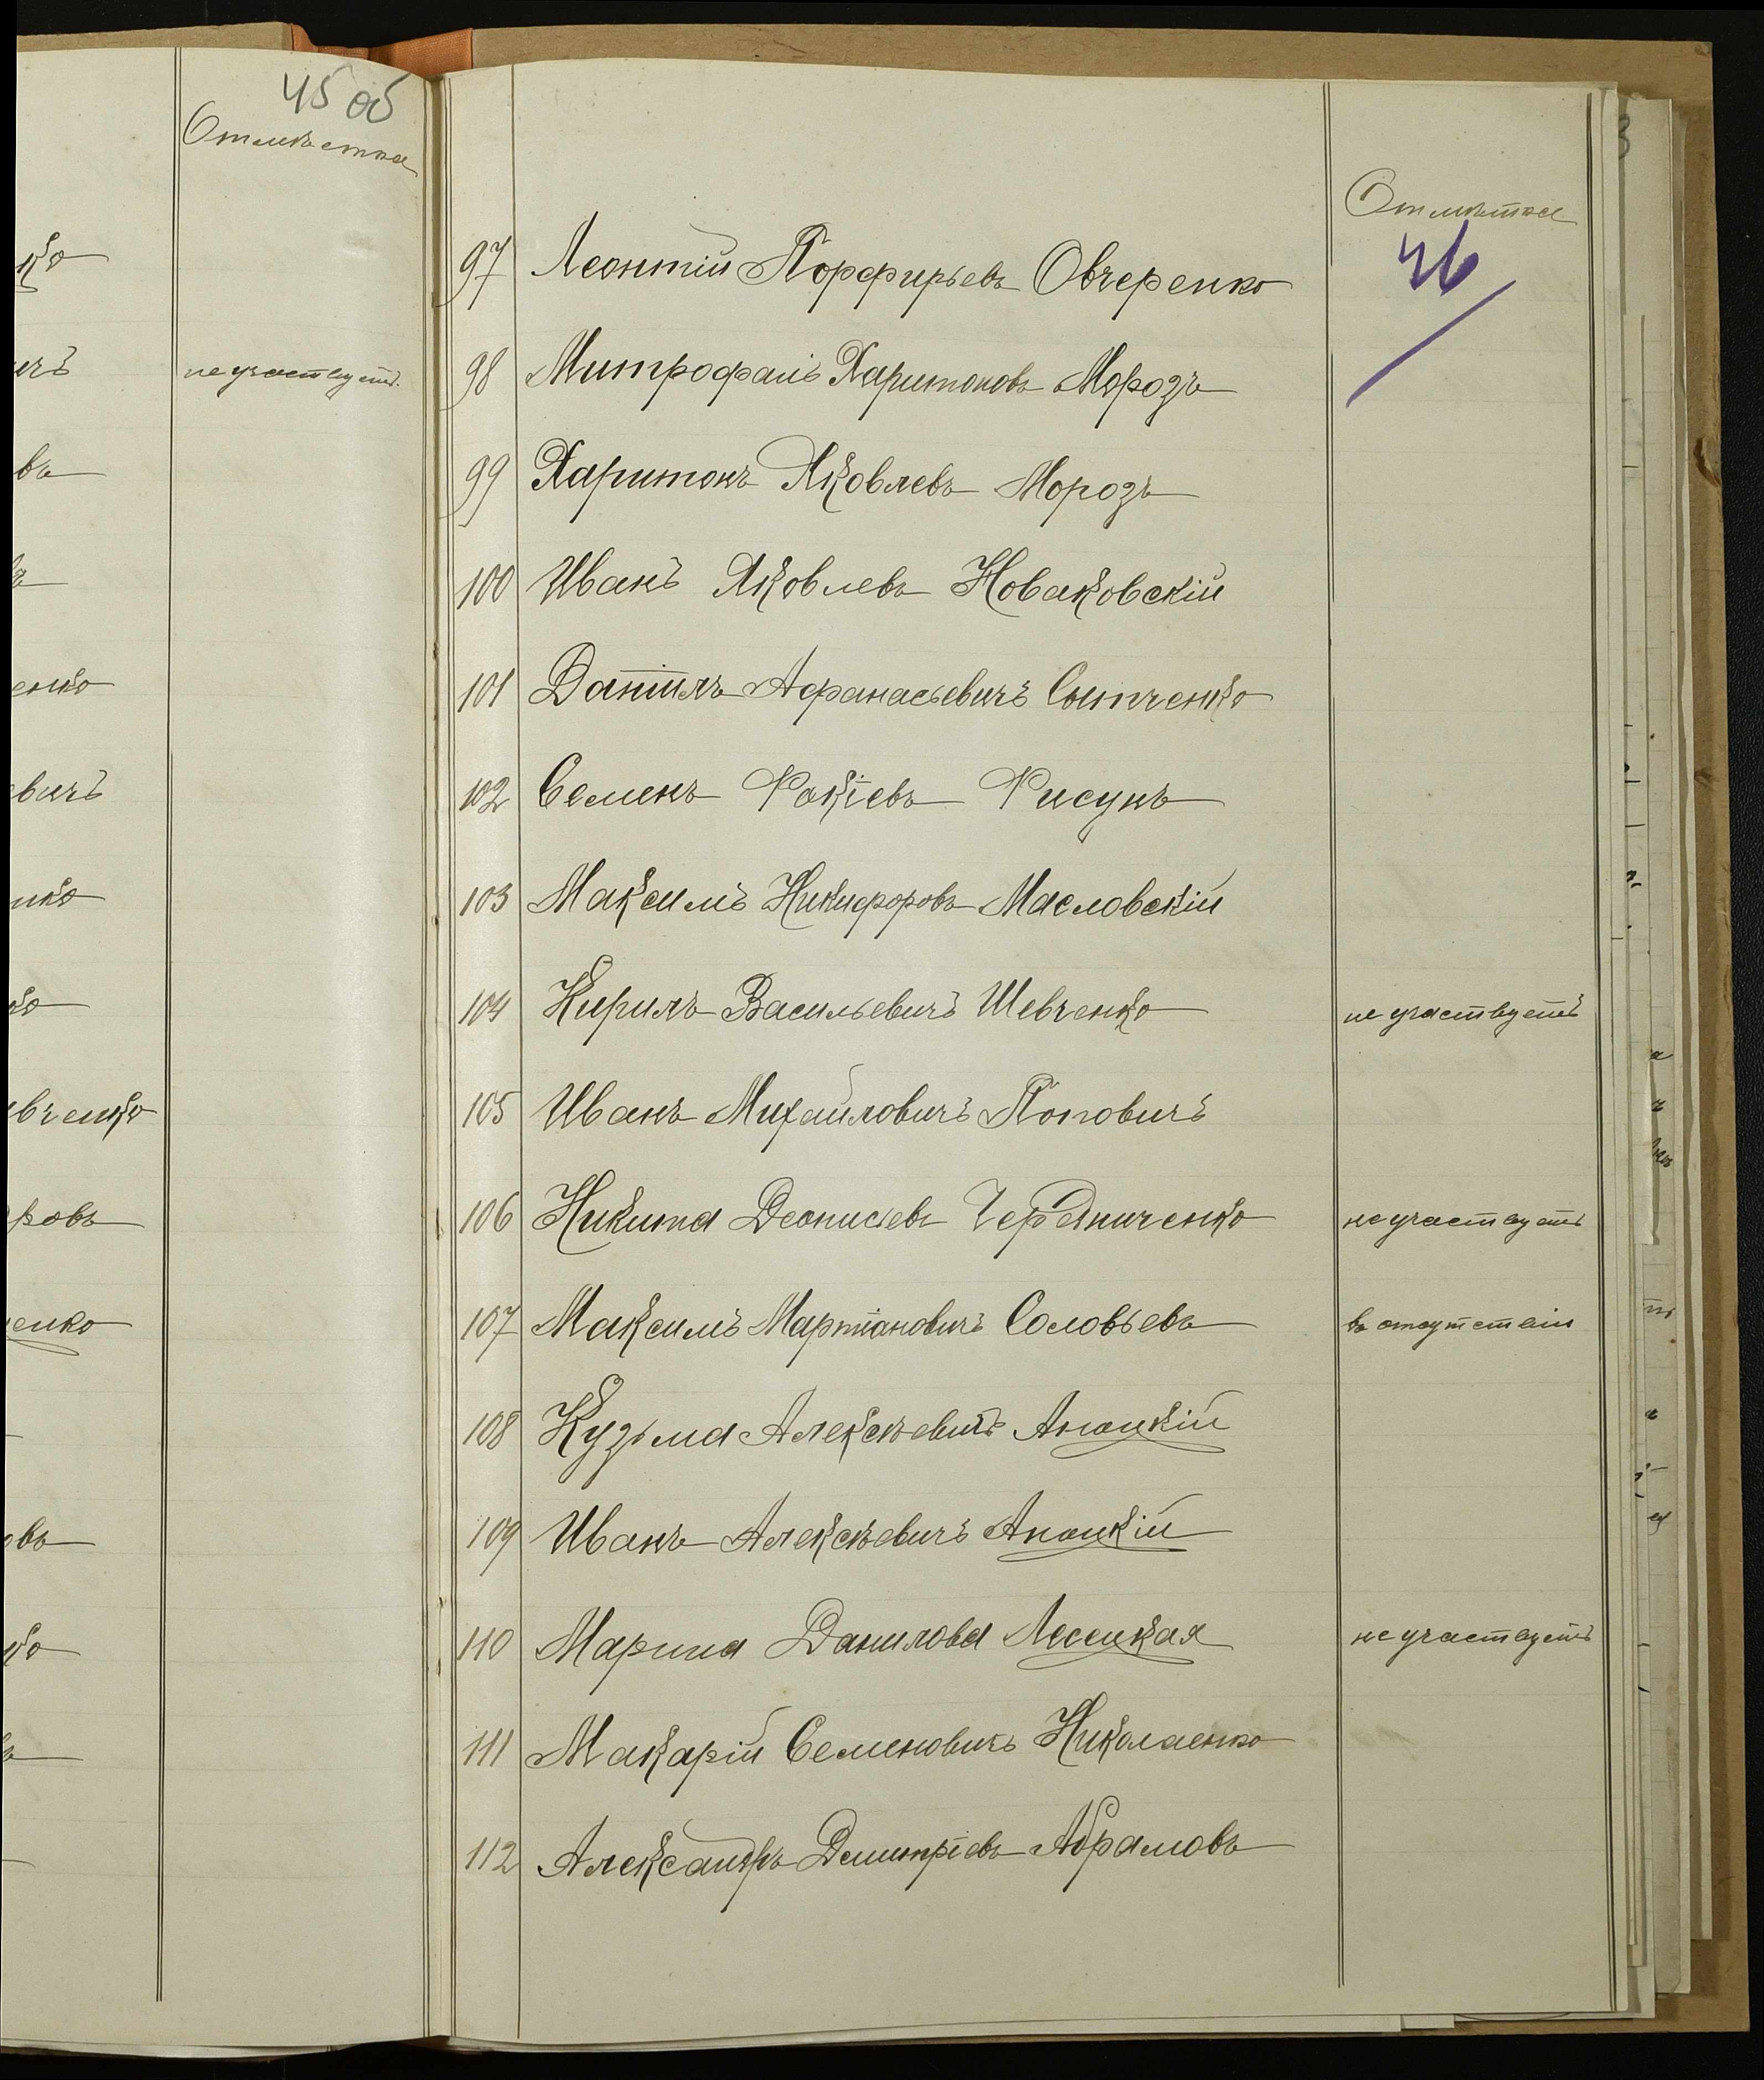 45 об
Отмѣтка
ко
ичъ не участвуетъ.
въ
енко
евичъ
нко
ко
вченко
ровъ
енко
овъ
ко
Отмѣтка
46
97 Леонтій Порфирьевъ Овчеренко
98 Митрофанъ Харитоновъ Морозъ
99 Харитонъ Яковлевъ Морозъ
100 Иванъ Яковлевъ Новаковскій
101 Даніилъ Афанасьевичъ Сытченко
102 Семенъ Фокіевъ Фисунъ
103 Максимъ Никифоровъ Масловскій
104 Кирилъ Васильевичъ Шевченко не участвуетъ
105 Иванъ Михайловичъ Поповичъ
106 Никита Деонисіевъ Чередниченко не участвуетъ
107 Максимъ Мартіановичъ Соловьевъ въ отсутствіи
108 Кузьма Алексѣевичъ Анацкій
109 Иванъ Алексѣевичъ Анацкій
110 Марина Данилова Лесецкая не участвуетъ
111 Макарій Семеновичъ Николаенко
112 Александръ Димитріевъ Абрамовъ